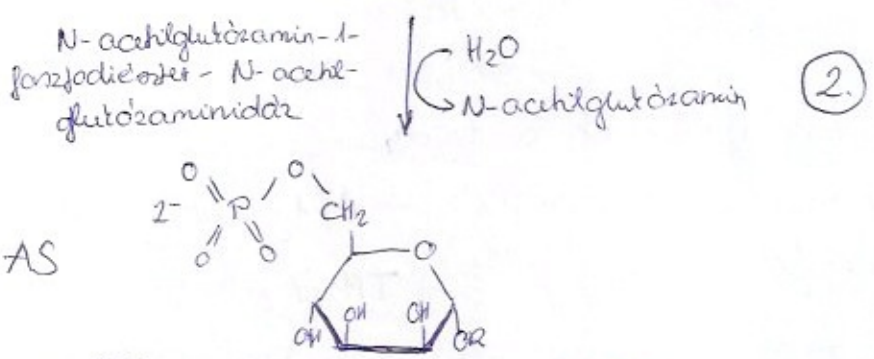 N-acetilglutózamin-1-
foszfodiészter - N-acetil-
glutózaminidáz
H2O
N-acetilglutózamin
2.
O
O
2-
P
CH2
O
O
O
AS
OH
OH
OH
OR